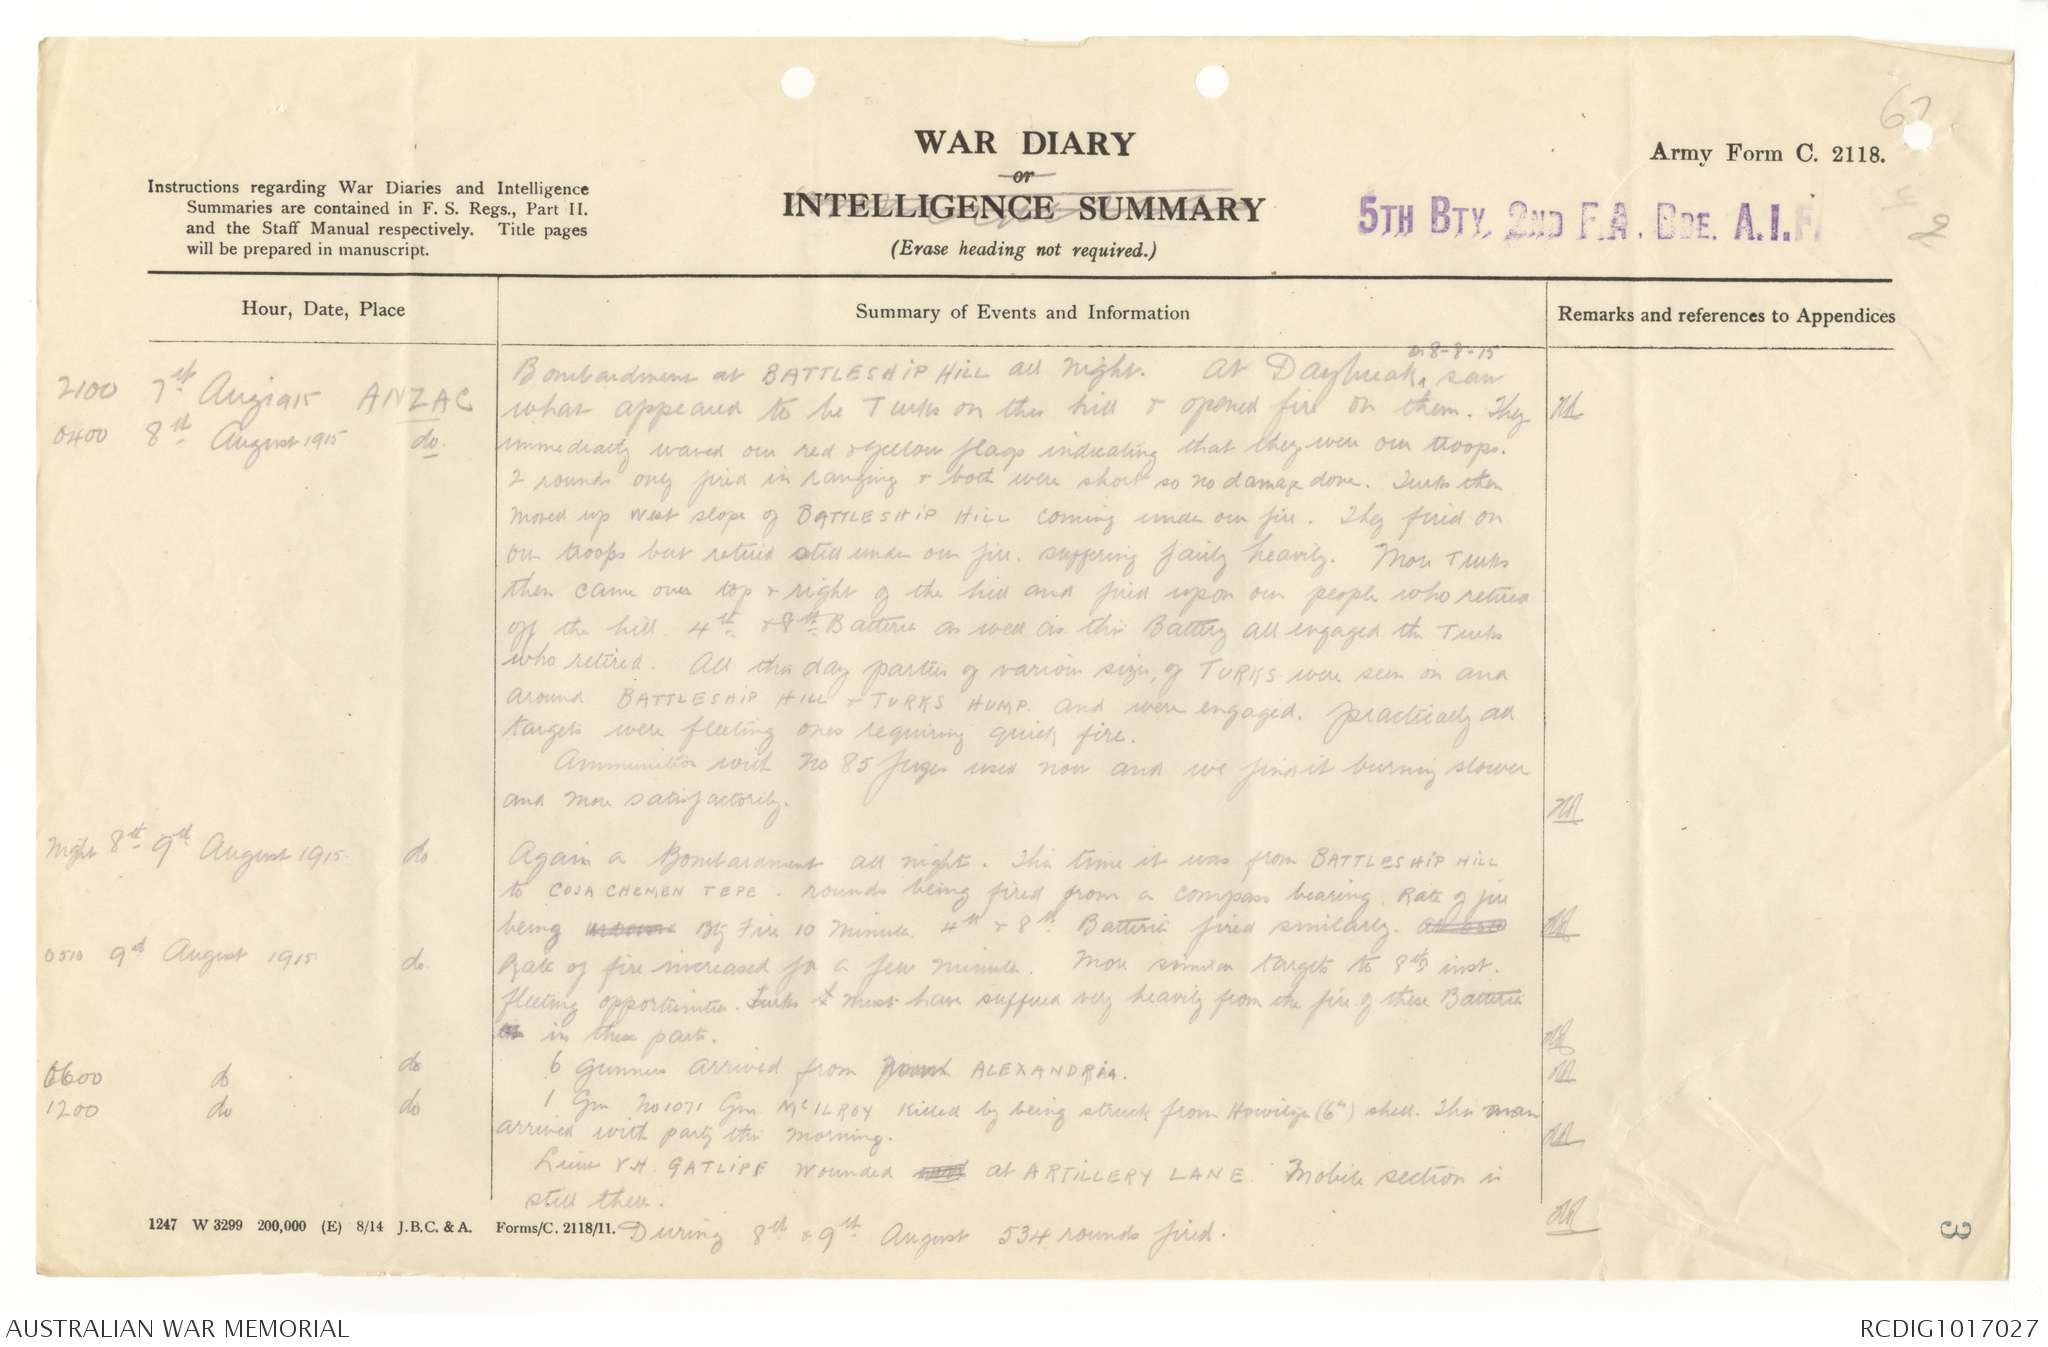 WAR DIARY
or
INTELLIGENCE SUMMARY
(Erase heading not required.)
Army Form C. 2118.
Instructions regarding War Diaries and Intelligence
Summaries are contained in F. S. Regs., Part II.
and the Staff Manual respectively. Title pages
will be prepared in manuscript.
5TH BTY. 2ND F.A. BDE. A.I.F.
Hour, Date, Place
Summary of Events and Information
Remarks and references to Appendices
2100 7th Aug 1915 ANZAC
0400 8th August 1915 do.
Bombardment at BATTLESHIP HILL all night. At Daybreak 8-8-15 saw
what appeared to be Turks on this hill & opened fire on them. They
immediately waved our red & yellow flags indicating that they were our troops.
2 rounds only fired in ranging & both were short so no damage done. Turks then
moved up West slope of BATTLESHIP HILL coming under our fire. They fired on
our troops but retired still under our fire. suffering fairly heavily. More Turks
then came over top & right of the hill and fired upon our people who retired
off the hill 4th & 8th Batteries as well as this Battery all engaged the Turks
who retired. All this day parties of various sizes, of TURKS were seen on and
around BATTLESHIP HILL & TURKS HUMP. and were engaged. practically all
targets were fleeting ones requiring quick fire.
Ammunition with No 85 fuzes used now and we find it burning slower
and more satisfactorily.
Night 8th 9th August 1915 do
Again a Bombardment all night. This time it was from BATTLESHIP HILL
to COJA CHEMEN TEPE. rounds being fired from a compass bearing. Rate of fire
being Bty Fire 10 Minutes. 4th & 8th Batteries fired similarly.
0510 9th August 1915 do.
Rate of fire increased for a few minutes. More similar targets to 8th inst.
fleeting opportunities. Turks must have suffered very heavily from the fire of these Batteries
in these parts.
0600 do do
6 Gunners arrived from ALEXANDRIA.
1200 do do
1 Gnr No 1071 Gnr McILROY Killed by being struck from Howitzer (6") shell. This man
arrived with party this morning.
Lieut V.H. GATLIFF Wounded at ARTILLERY LANE. Mobile section is
still there.
During 8th & 9th August 534 rounds fired.
1247 W 3299 200,000 (E) 8/14 J.B.C. & A. Forms/C. 2118/11.
3
AUSTRALIAN WAR MEMORIAL
RCDIG1017027